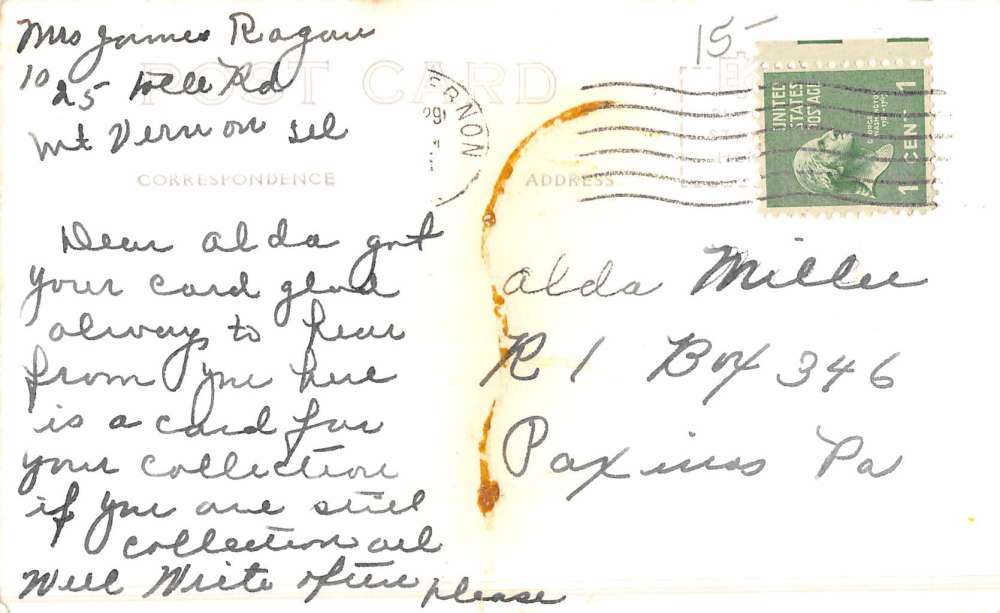 Mrs James Ragan
1025 Well Rd
Mt Vernon Ill
15-
POST CARD
CORRESPONDENCE
ADDRESS
RNON
UNITED
STATES
POSTAGE
GEORGE
WASHINGTON
1 CENT 1
Dear Alda got
your card glad
alway to hear
from you here
is a card for
your collection
if you are still
collection all
Well Write often please
Alda Miller
R 1 Box 346
Paxinos Pa